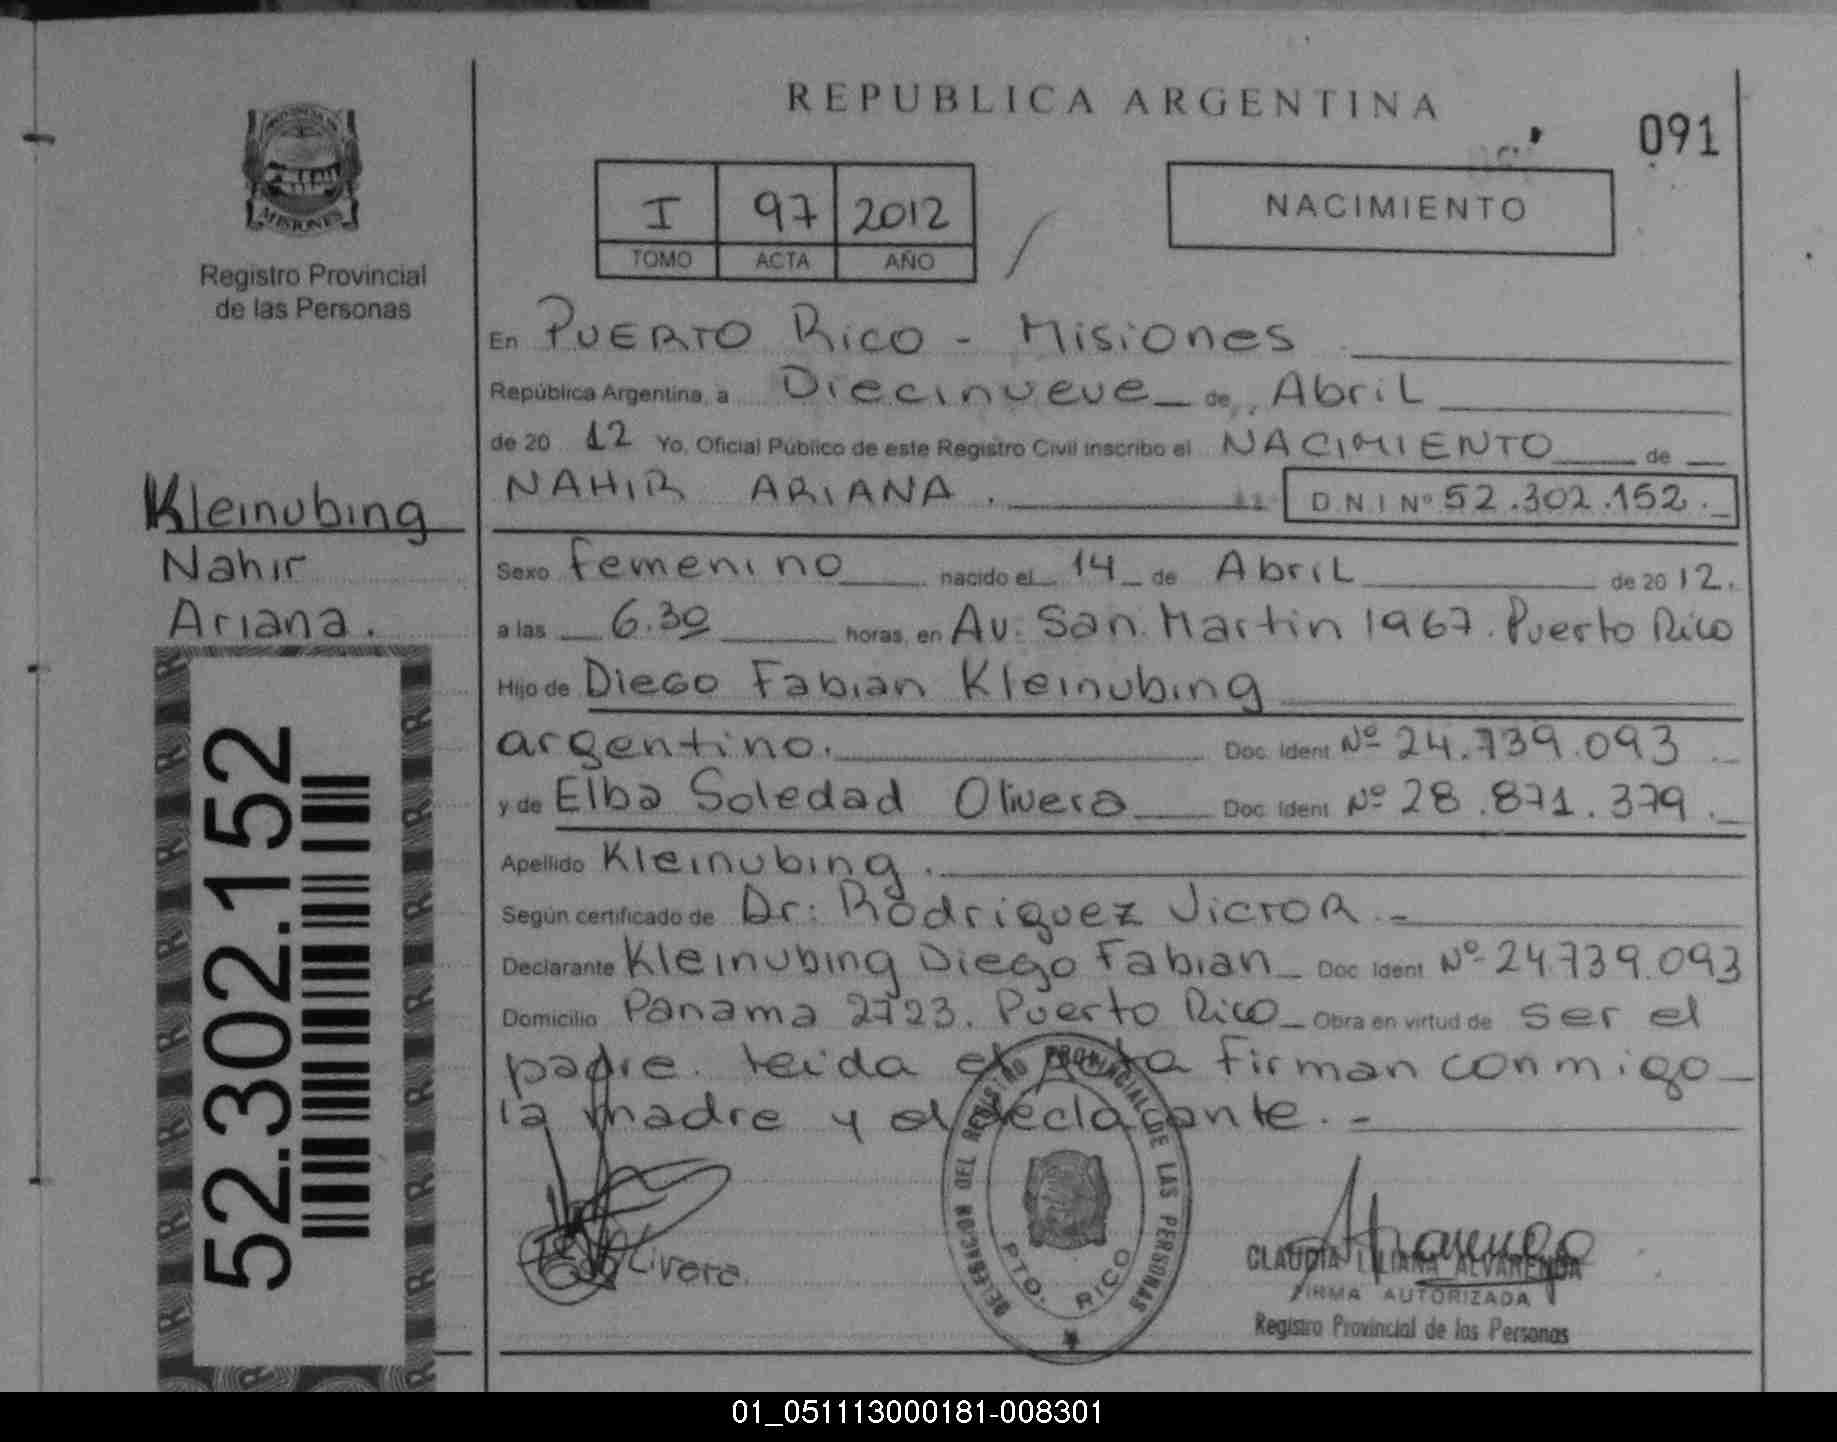 REPUBLICA ARGENTINA
091
MISIONES
Registro Provincial
de las Personas
I 97 2012
TOMO ACTA AÑO
NACIMIENTO
En PUERTO Rico - Misiones
República Argentina, a Diecinueve de Abril
de 20 12 Yo, Oficial Público de este Registro Civil inscribo el NACIMIENTO de
NAHIR ARIANA. D.N.I Nº 52.302.152.
Kleinubing
Nahir
Ariana.
Sexo femenino nacido el 14 de Abril de 20 12.
a las 6.30 horas, en Av. San Martin 1967. Puerto Rico
Hijo de Diego Fabian Kleinubing
argentino. Doc. Ident Nº 24.739.093
y de Elba Soledad Olivera Doc. Ident Nº 28.871.379.
Apellido Kleinubing.
Según certificado de Dr: Rodriguez Victor.-
Declarante Kleinubing Diego Fabian Doc. Ident Nº 24.739.093
Domicilio Panama 2723. Puerto Rico Obra en virtud de ser el
padre. leida el acta firman conmigo
la madre y el declarante.-
52.302.152
DELEGACION DEL REGISTRO PROVINCIAL DE LAS PERSONAS
PTO. RICO
Olivera
CLAUDIA LILIANA ALVARENGA
FIRMA AUTORIZADA
Registro Provincial de las Personas
01_051113000181-008301